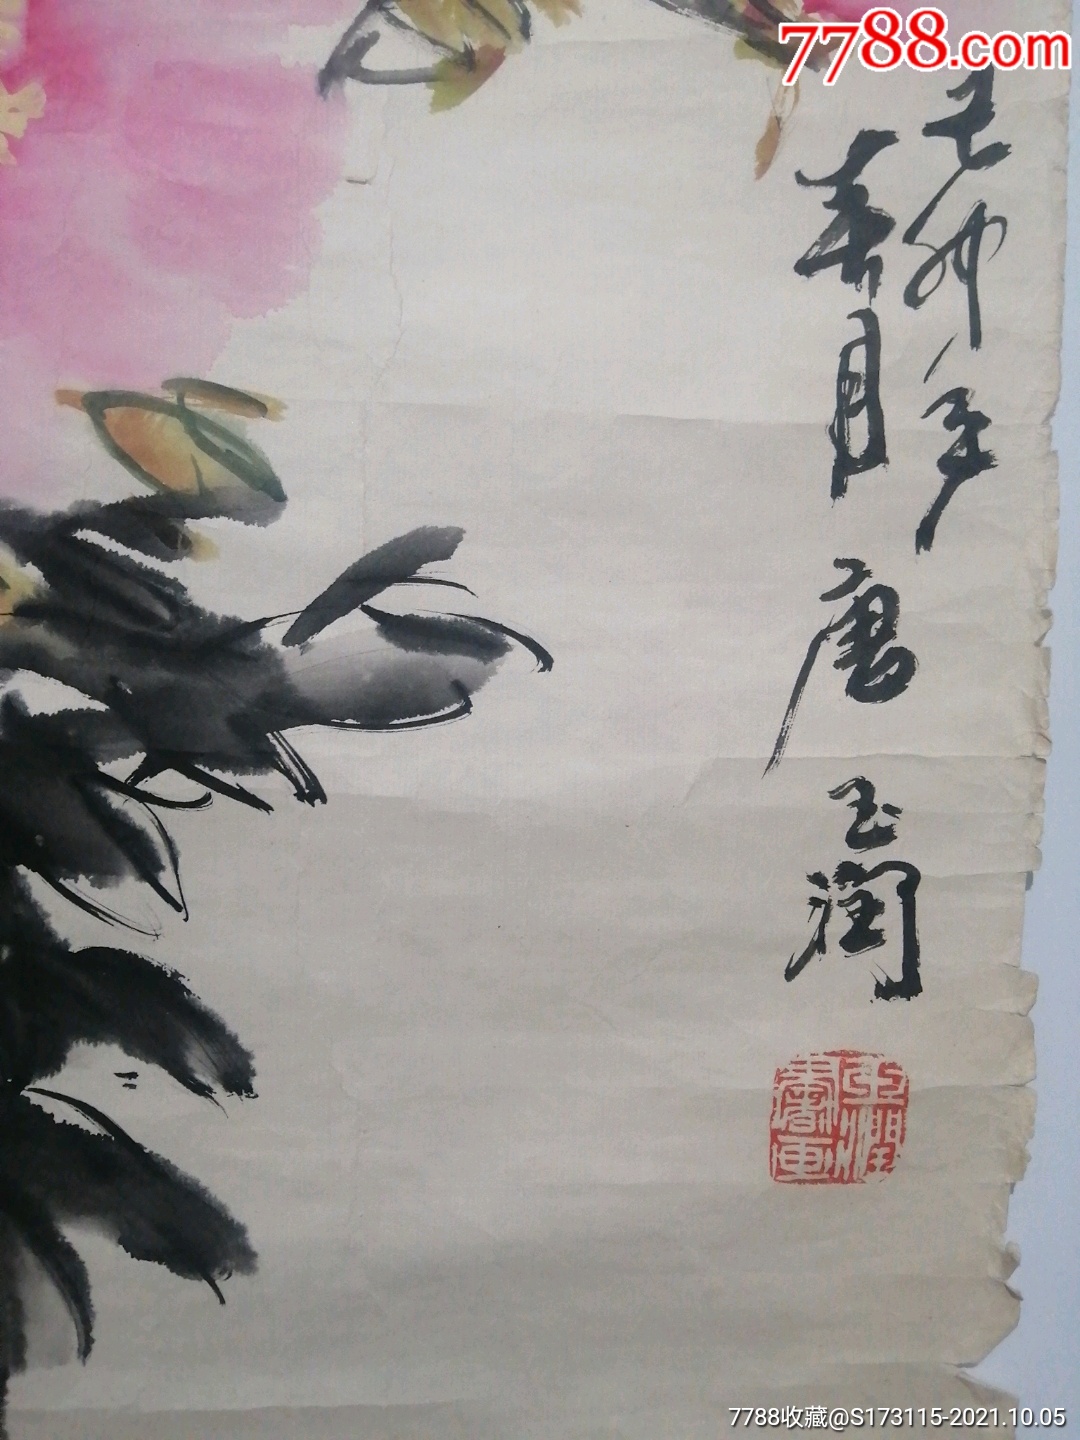 7788.com
己卯年
春月唐玉润
玉润
书画
7788收藏@S173115-2021.10.05